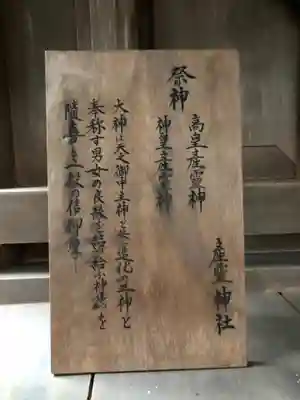 産霊神社
祭神 高皇産霊神
神皇産霊神
大神は天之御中主神と造化の三神と
奉称す男女の良縁を結給ふ神徳を
随喜し一般の信仰厚し